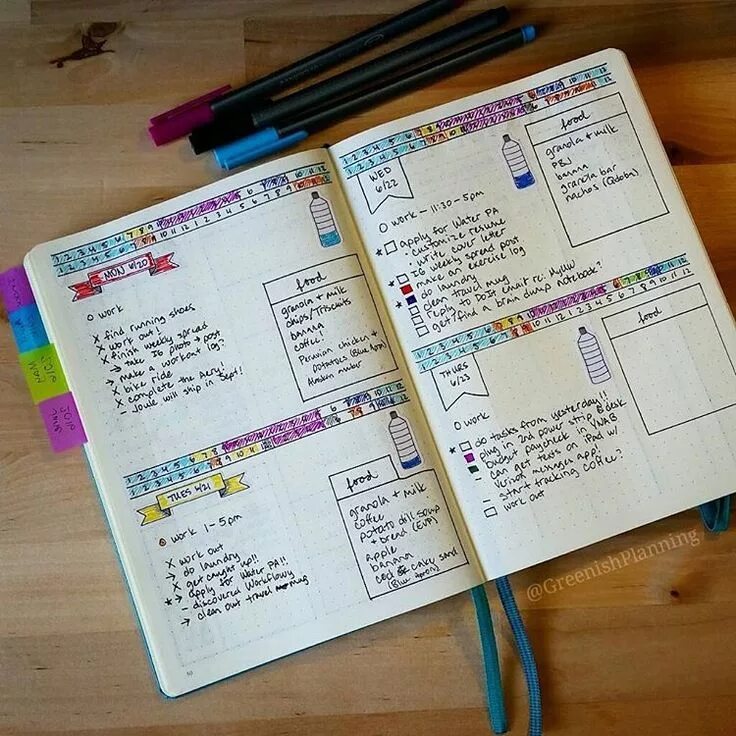 1 2 3 4 5 6 7 8 9 10 11 12
1 2 3 4 5 6 7 8 9 10 11 12
MON 6/20
O work
x find running shoes
x work out!
x finish weekly spread
→ take IG photo + post
→ make a workout log?
x bike ride
x complete the Acry!
Joule will ship in Sept!
food
granola + milk
chips/Triscuits
banana
coffee!
Peruvian chicken +
potatoes (Blue Apron)
Alaskan amber
1 2 3 4 5 6 7 8 9 10 11 12
1 2 3 4 5 6 7 8 9 10 11 12
TUES 6/21
O work 1-5pm
x work out
→ do laundry
x get caught up!!
* → apply for Water PA!!
- discovered Workflowy
→ clean out travel mug
food
granola + milk
coffee
potato dill soup
+ bread (EVP)
apple
banana
cod & cakey
(Blue Apron)
50
1 2 3 4 5 6 7 8 9 10 11 12
1 2 3 4 5 6 7 8 9 10 11 12
WED
6/22
O work - 11:30-5pm
* apply for Water PA
· customize resume
· write cover letter
IG weekly spread post
make an exercise log
* do laundry
clean travel mug
reply to DoIt email re: MyUW
get/find a brain dump notebook?
food
granola + milk
PBJ
banana
granola bar
nachos (Qdoba)
1 2 3 4 5 6 7 8 9 10 11 12
1 2 3 4 5 6 7 8 9 10 11 12
THURS
6/23
O work
* do tasks from yesterday!!
plug in 2nd power strip @ desk
budget paycheck in YNAB
- can get texts on iPad w/
verizon messages app!
- start tracking coffee?
work out
food
@GreenishPlanning